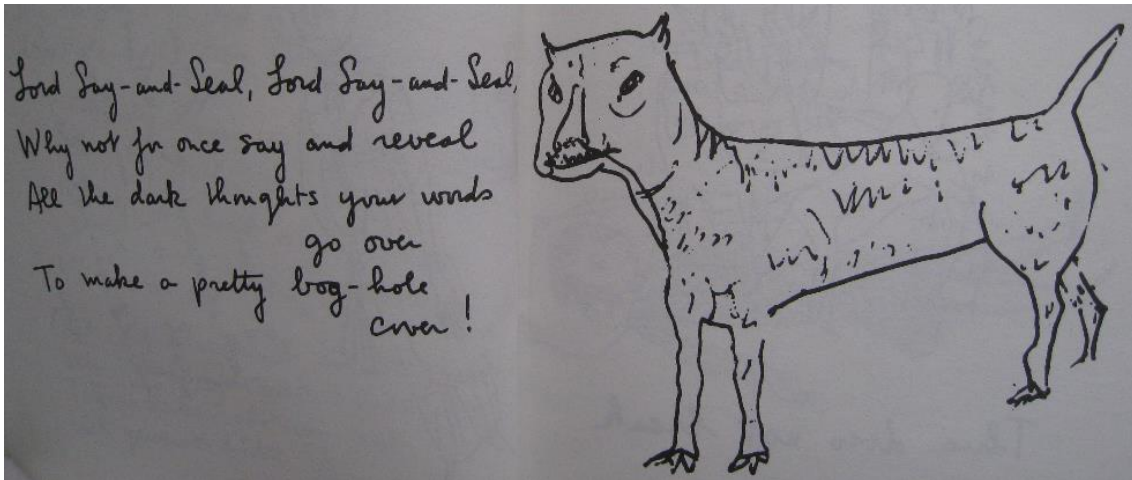 Lord Say-and-Seal, Lord Say-and-Seal,
Why not for once say and reveal
All the dark thoughts your words
go over
To make a pretty bog-hole
cover!